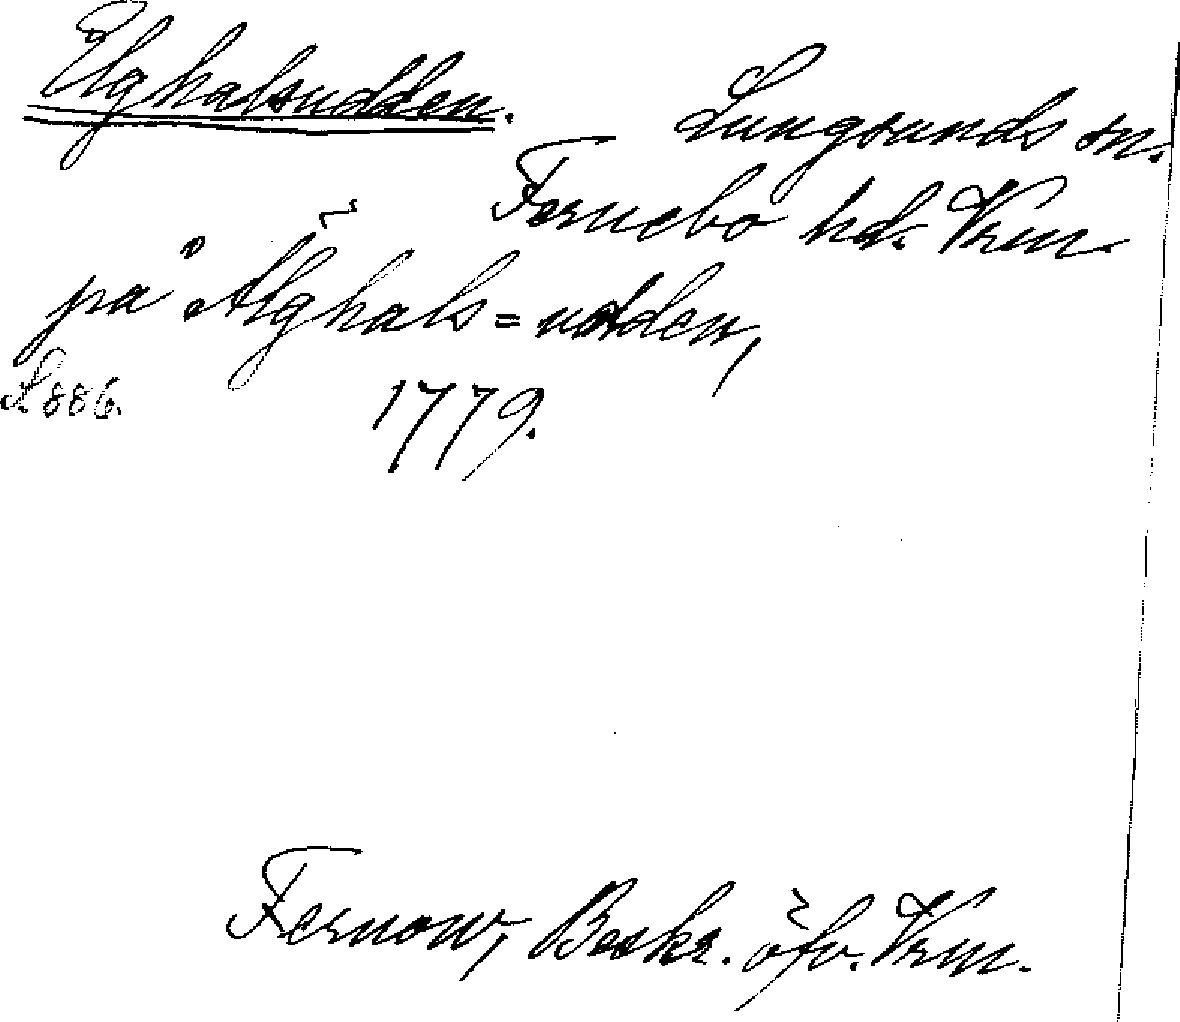 Elghalsudden.
Lungsunds sn.
Fernebo hd. Vrm.
på Älghals=udden,
S. 886.
1779.
Fernow, Beskr. öfv. Vrm.